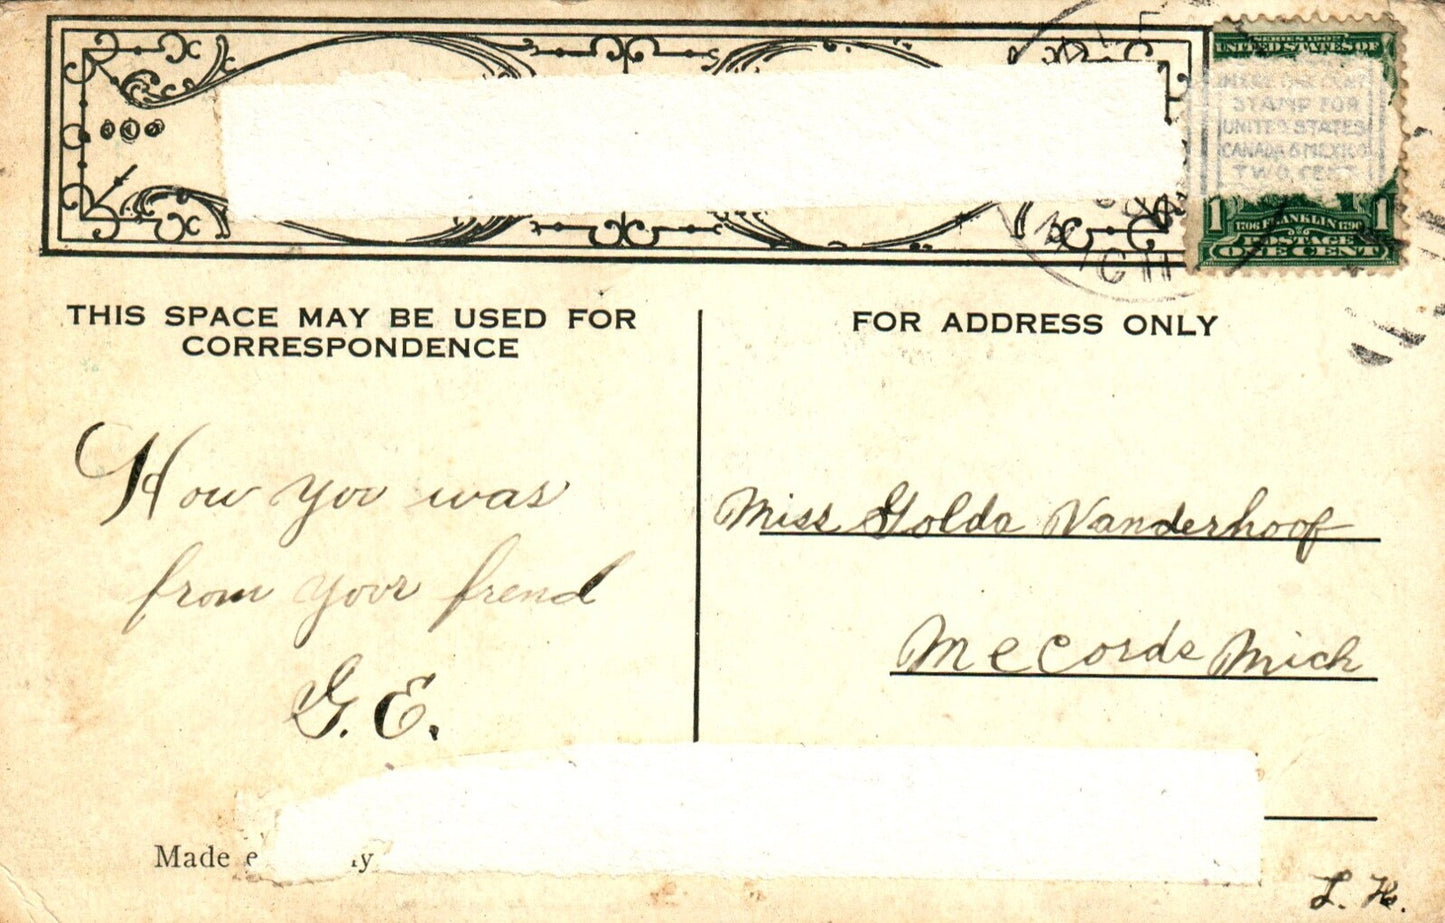 SERIES 1902
UNITED STATES OF
STAMP FOR
UNITED STATES
CANADA & MEXICO
TWO CENT
1 1706 FRANKLIN 1790 1
POSTAGE
ONE CENT
MICH
THIS SPACE MAY BE USED FOR
CORRESPONDENCE
FOR ADDRESS ONLY
How yoo was
from yoor frend
G. E.
Miss Golda Vanderhoof
McCords Mich
Made
L. H.